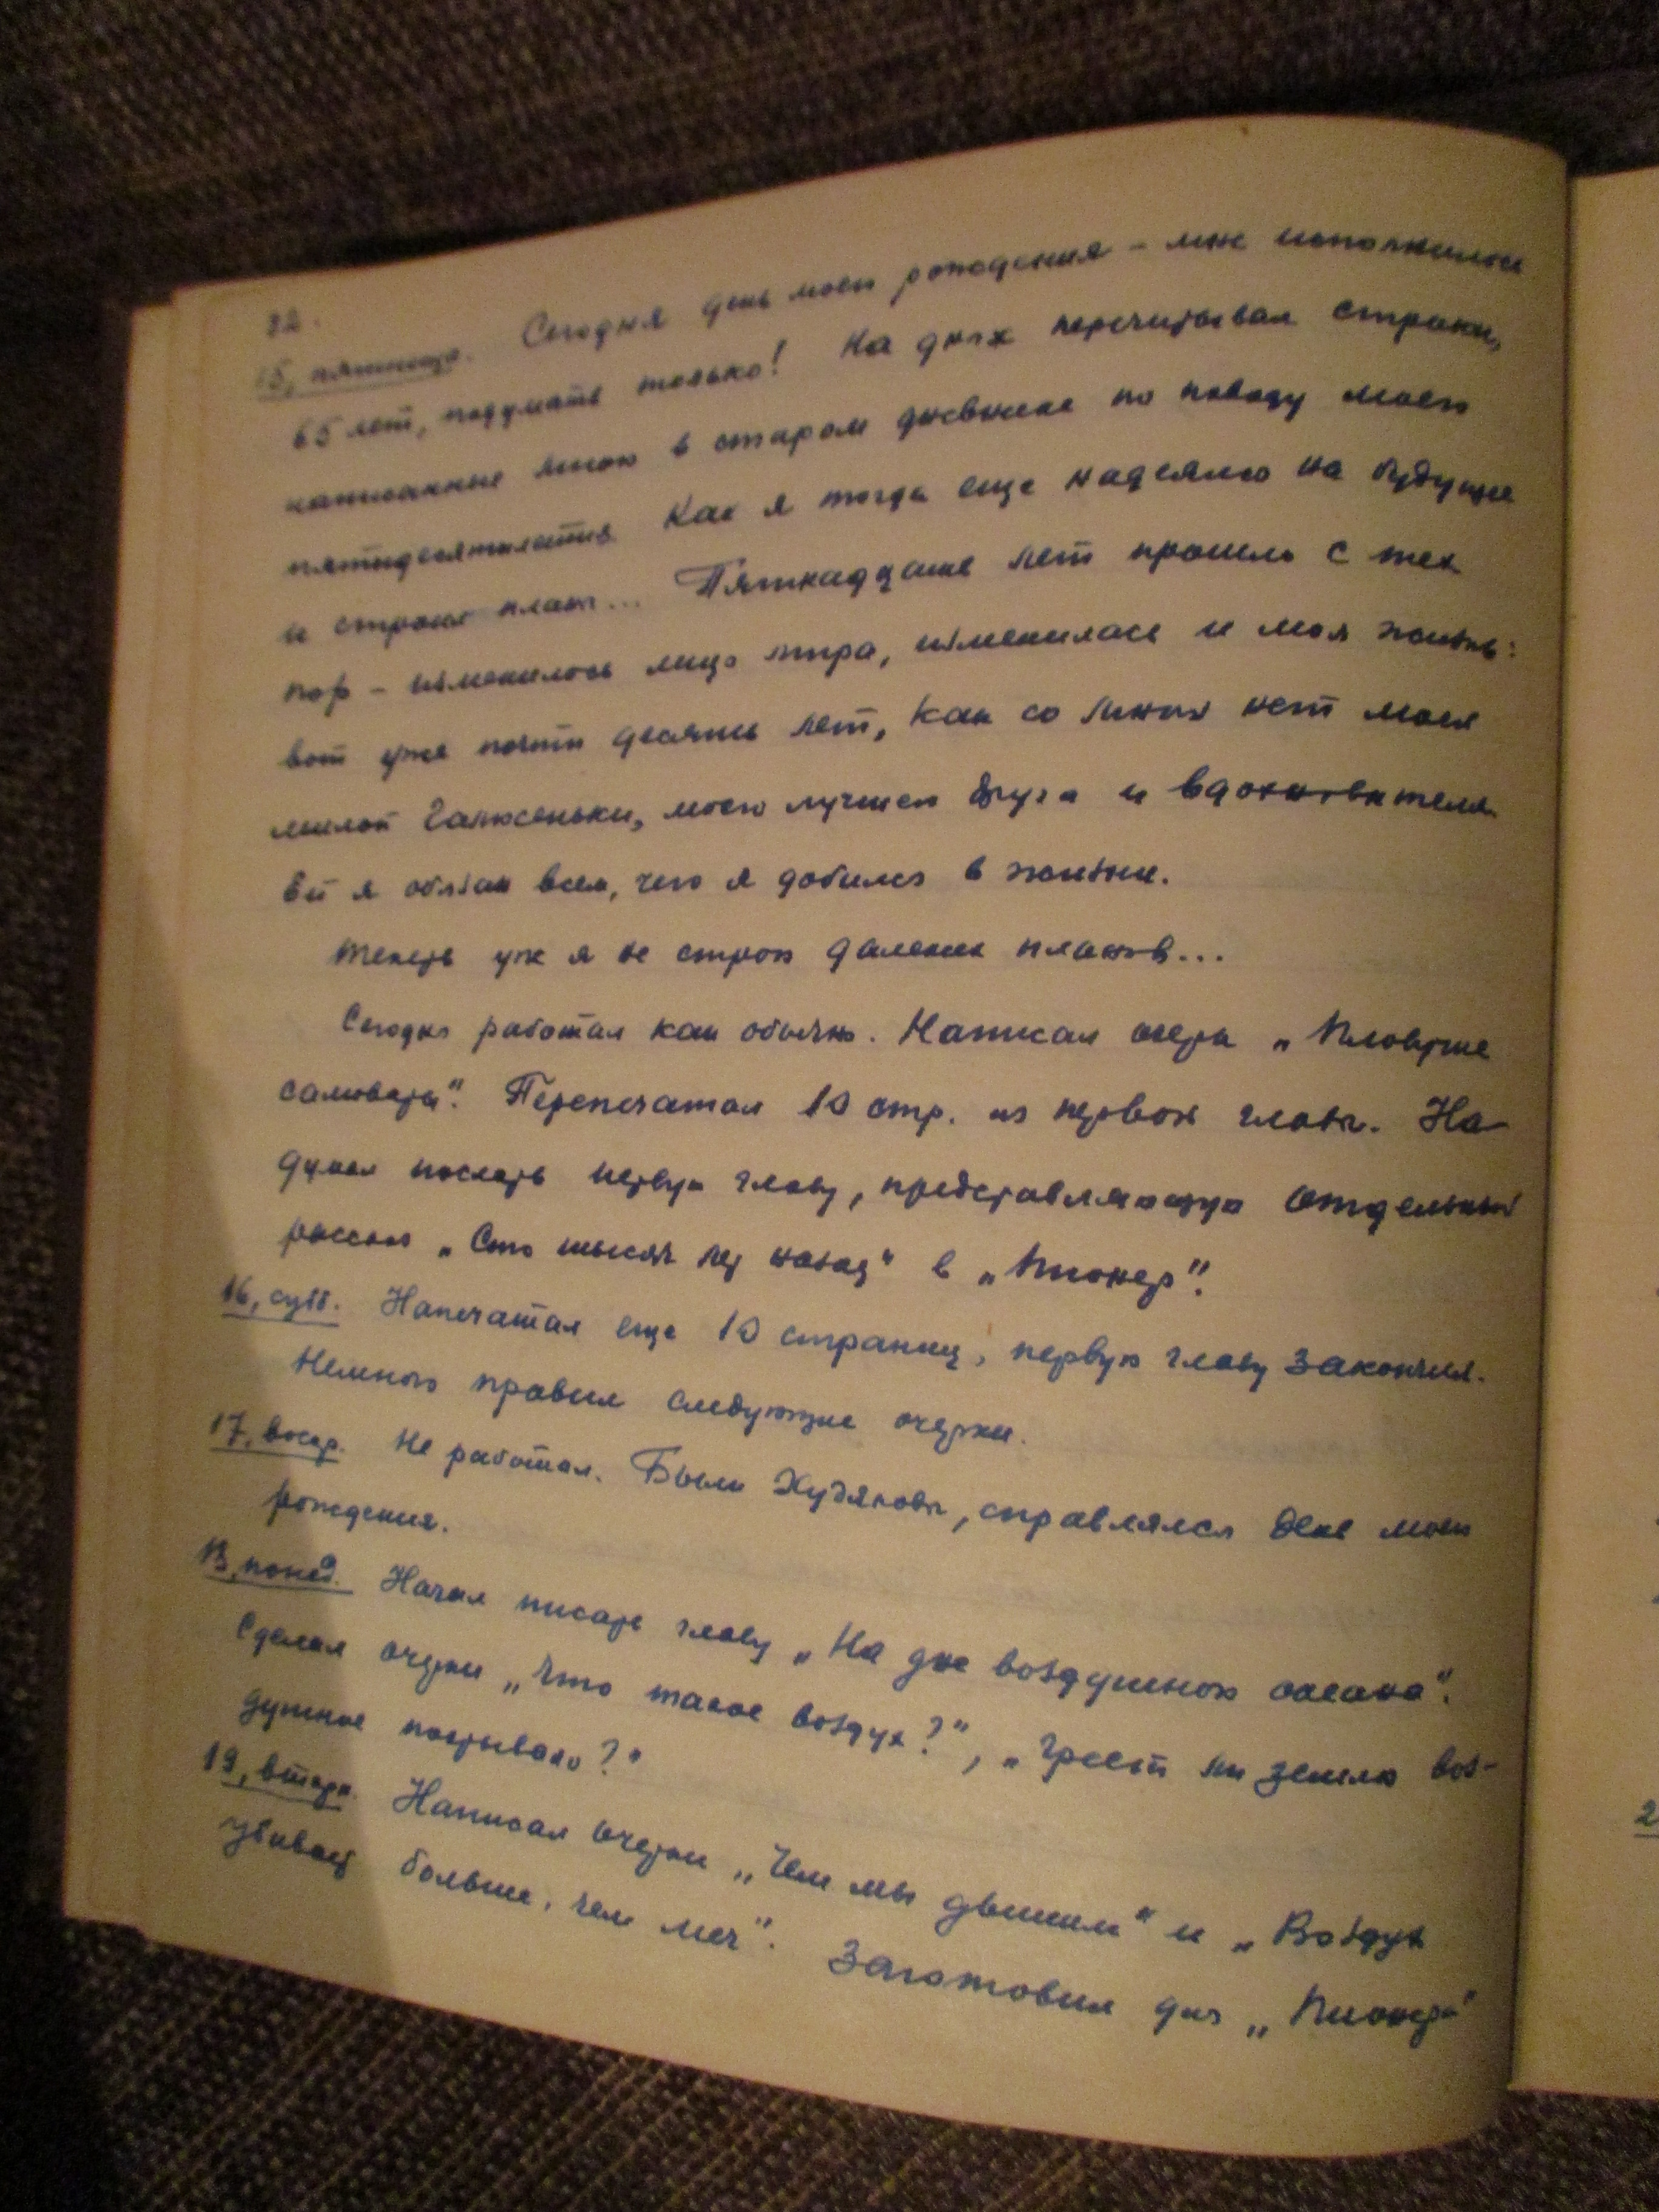 32.
15, пятница. Сегодня день моего рождения – мне исполнилось
65 лет, подумать только! На днях перечитывал строки,
написанные мною в старом дневнике по поводу моего
пятидесятилетия. Как я тогда еще надеялся на будущее
и строил планы... Пятнадцать лет прошло с тех
пор – изменилось лицо мира, изменилась и моя жизнь:
вот уже почти десять лет, как со мною нет моей
милой Галюсеньки, моего лучшего друга и вдохновителя.
Ей я обязан всем, чего я добился в жизни.
Теперь уж я не строю далеких планов...
Сегодня работал как обычно. Написал очерк „Пловучие
самовары". Перепечатал 10 стр. из первой главы. На-
думал послать первую главу, представляющую отдельный
рассказ „Сто тысяч лет назад" в „Пионер".
16, субб. Напечатал еще 10 страниц, первую главу закончил.
Немного правил следующие очерки.
17, воскр. Не работал. Были Худяковы, справлялся день моего
рождения.
18, понед. Начал писать главу „На дне воздушного океана".
Сделал очерки „Что такое воздух?", „Греет ли землю воз-
душное покрывало?"
19, вторн. Написал очерки „Чем мы дышим" и „Воздух
убивает больше, чем меч". Заготовил для „Пионера"
2